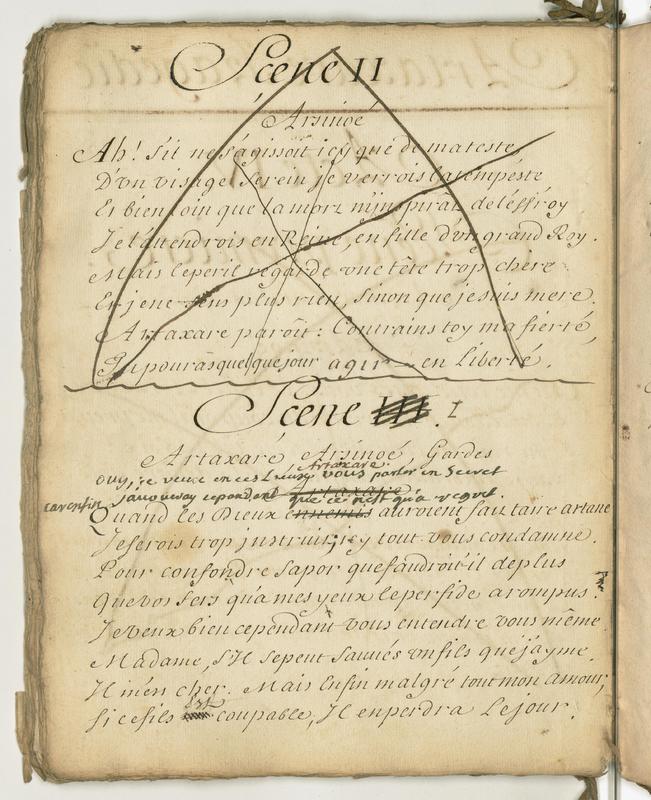 Scene II
Arsinoé
Ah! S'il ne s'agissoit icy que de ma teste,
D'vn visage serein je verrois la tempeste
Et bien loin que la mort m'inspirât de l'éffroy
Je l'attendrois en Reine, en fille d'vn grand Roy.
Mais le peril regarde vne tête trop chere
Et je ne sens plus rien, Sinon que je suis mere.
Artaxare paroît: Contrains toy ma fierté,
Tu pourras quelque jour agir en liberté.
Scene III. I
Artaxare, Arsinoé, Gardes
Artaxare.
Ouy, je veux en ces Lieux vous parler en Secret
car enfin j'auoueray cependant que ce n'est qu'a regret.
Artaxare.
Quand les Dieux ennemis auroient fait taire artane
Je serois trop instruit; icy tout vous condamne.
Pour confondre Sapor que faudroit-il de plus
Que vos fers qu'a mes yeux le perfide a rompus?
Je veux bien cependant vous entendre vous même
Madame, S'Il se peut Sauués vn fils que j'ayme.
Il m'en cher. Mais Enfin malgré tout mon amour,
Si ce fils est coupable, Il en perdra le jour.